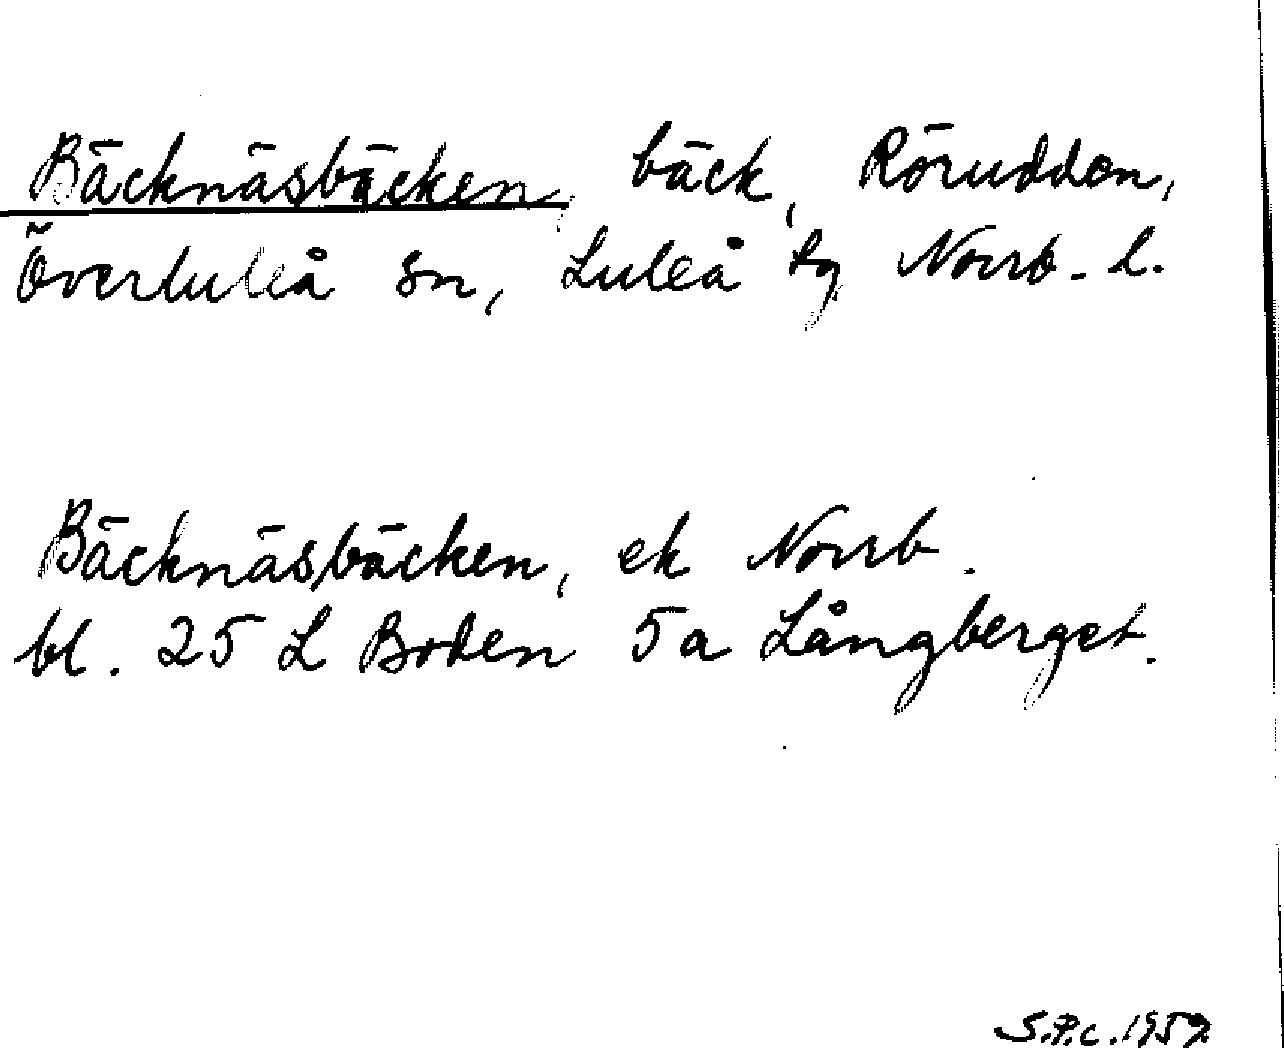 Bäcknäsbäcken, bäck, Rörudden,
Överluleå sn, Luleå tg Norrb. l.
Bäcknäsbäcken, ek Norrb.
bl. 25 L Boden 5a Långberget.
S.P.C. 1959.